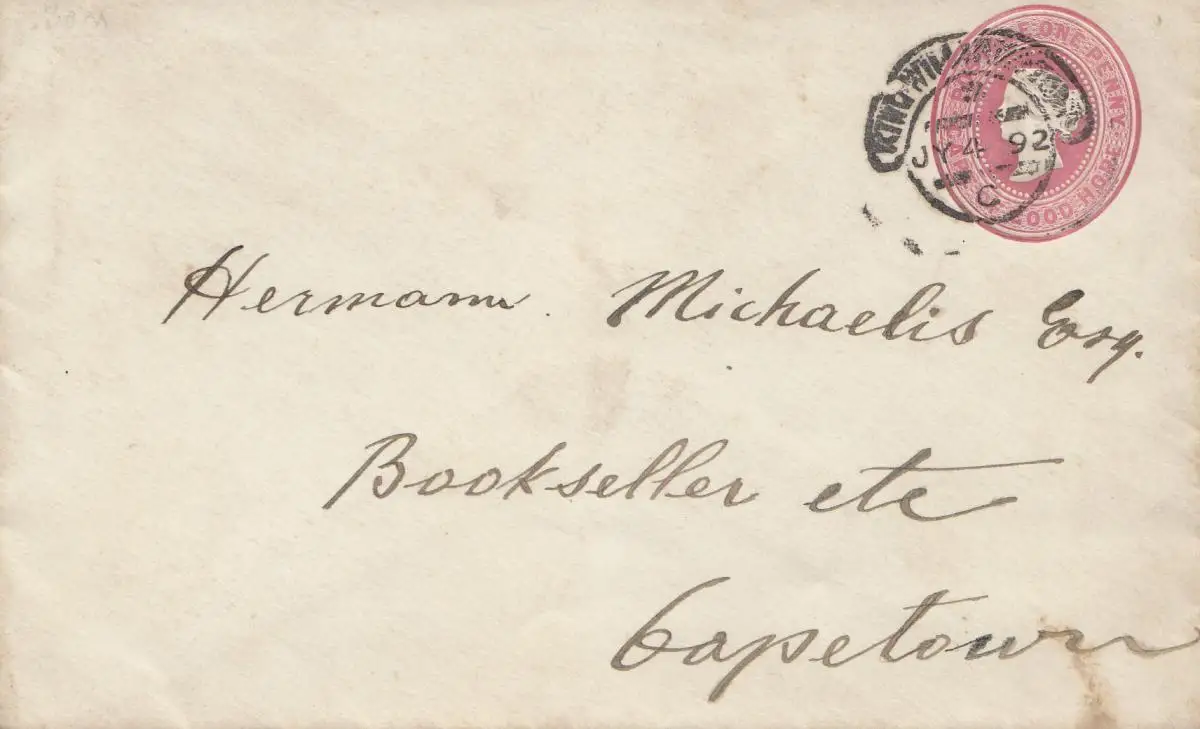 ONE PENNY
GOOD HOPE
KING WILLIAM
JY 4 92
C
Hermann Michaelis Esq.
Bookseller etc
Capetown